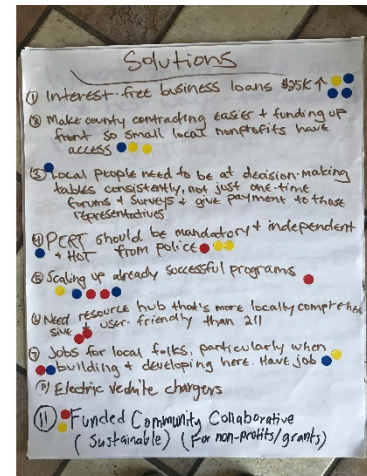 Solutions
① Interest-free business loans $25K ↑
② Make county contracting easier + funding up
front so small local nonprofits have
access
③ Local people need to be at decision-making
tables consistently, not just one-time
forums + surveys + give payment to those
representatives
④ PERT should be mandatory + independent
+ HOT from police
⑤ Scaling up already successful programs
⑥ Need resource hub that's more locally comprehen
sive + user-friendly than 211
⑦ Jobs for local folks, particularly when
building + developing here. Have job
Electric vechile chargers
⑪ Funded Community Collaborative
(Sustainable) (For non-profits/grants)